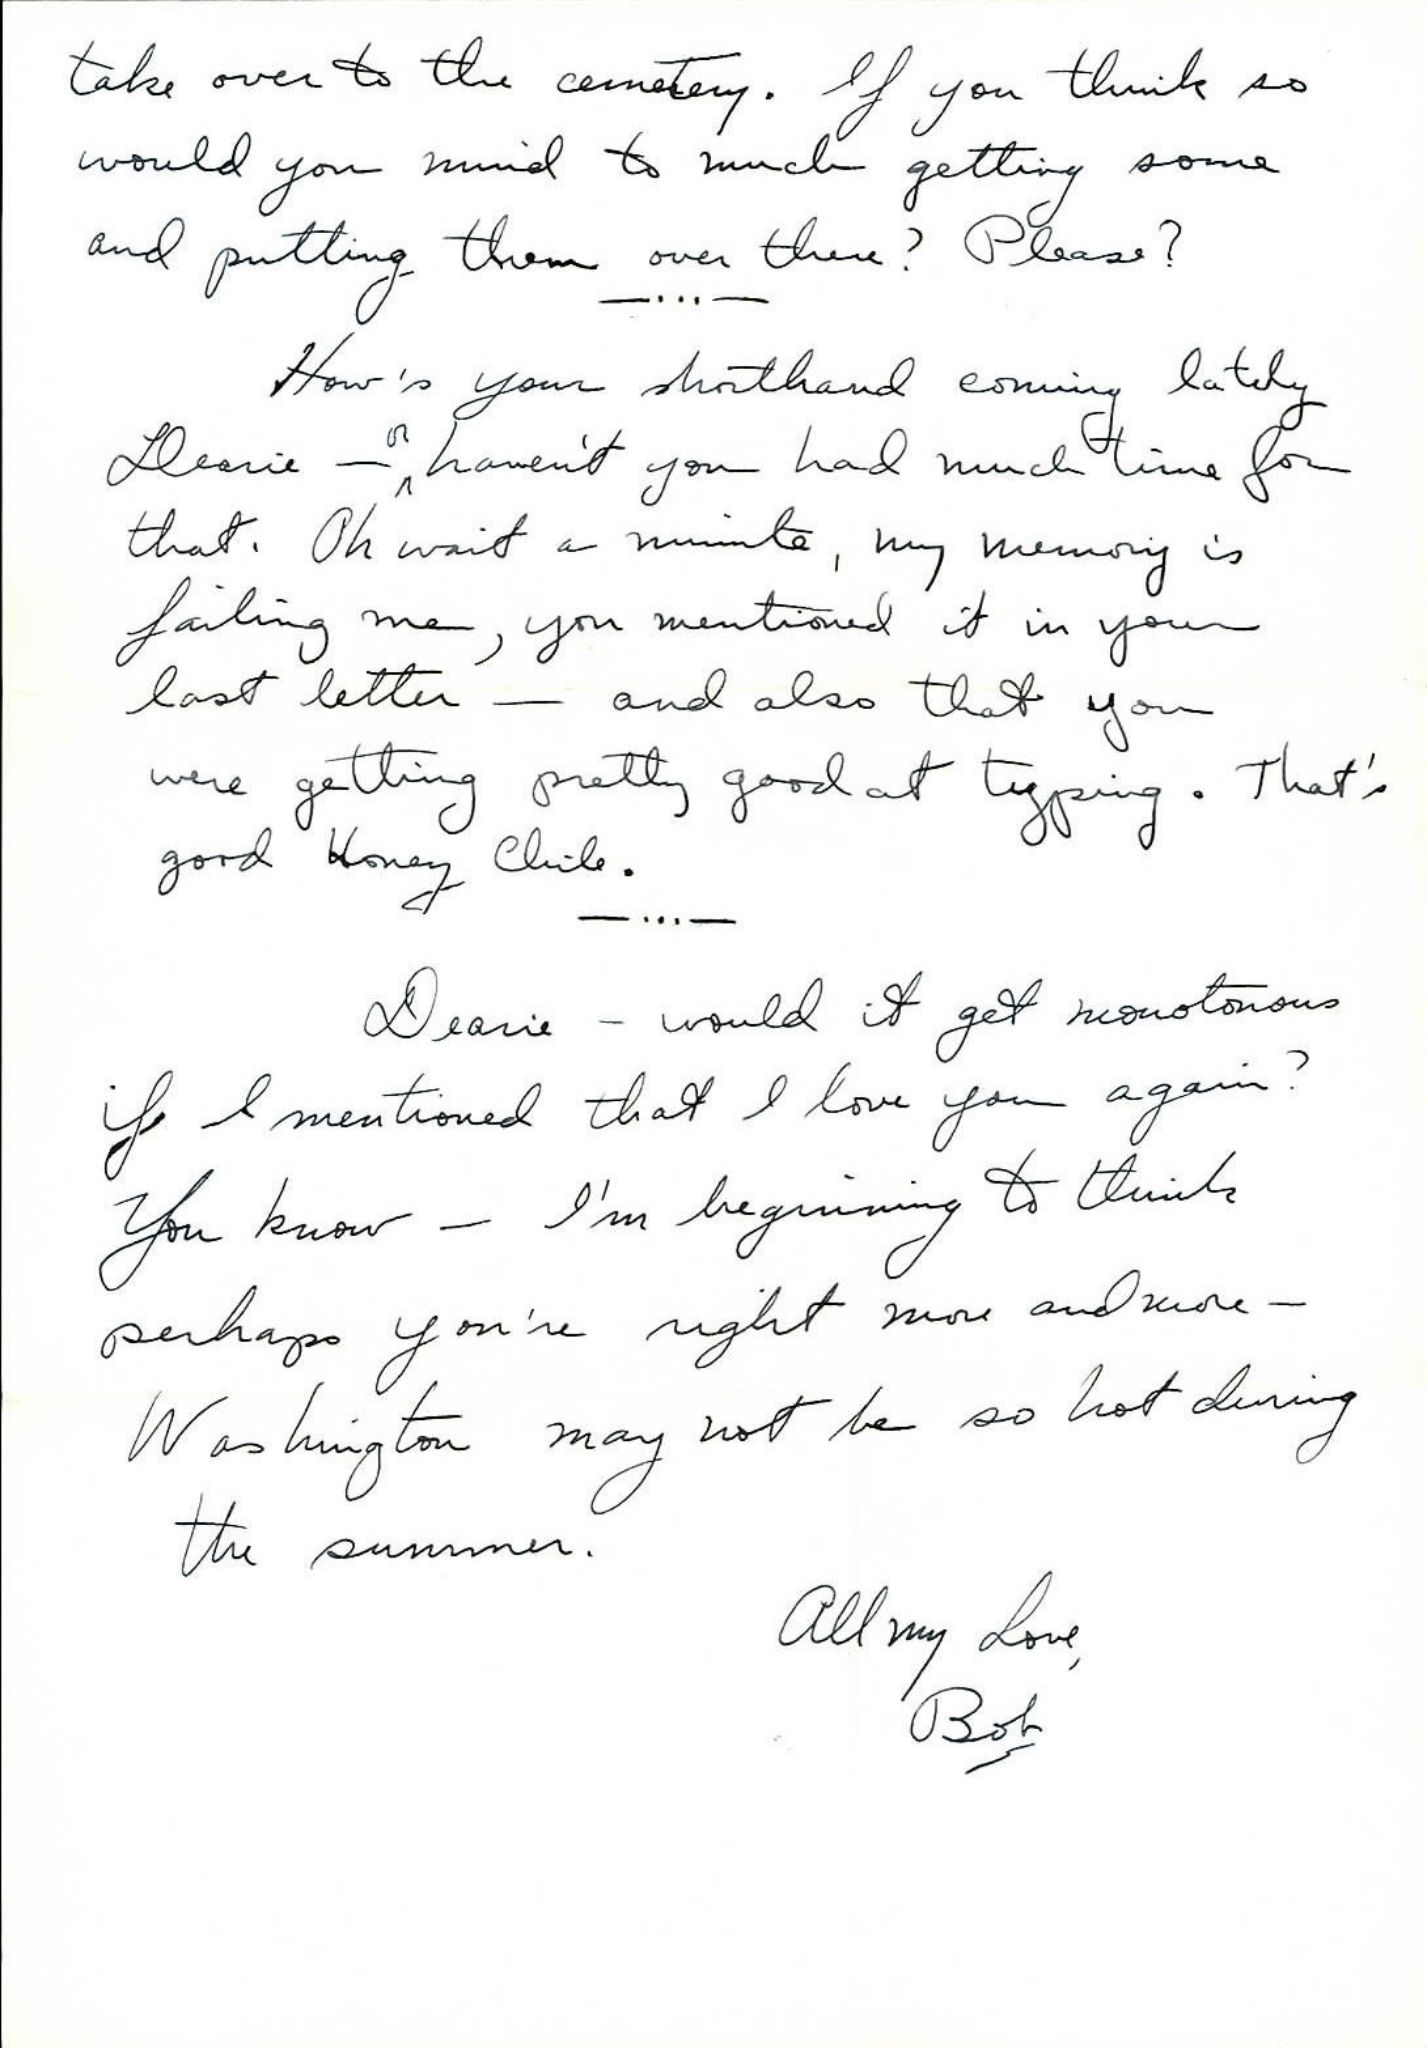 take over to the cemetery. If you think so
would you mind to much getting some
and putting them over there? Please?
—...—
How's your shorthand coming lately
Dearie — or haven't you had much time for
that. Oh wait a minute, my memory is
failing me, you mentioned it in your
last letter — and also that you
were getting pretty good at typing. That's
good Honey Chile.
—...—
Dearie – would it get monotonous
if I mentioned that I love you again?
You know — I'm beginning to think
perhaps you're right more and more —
Washington may not be so hot during
the summer.
All my Love,
Bob